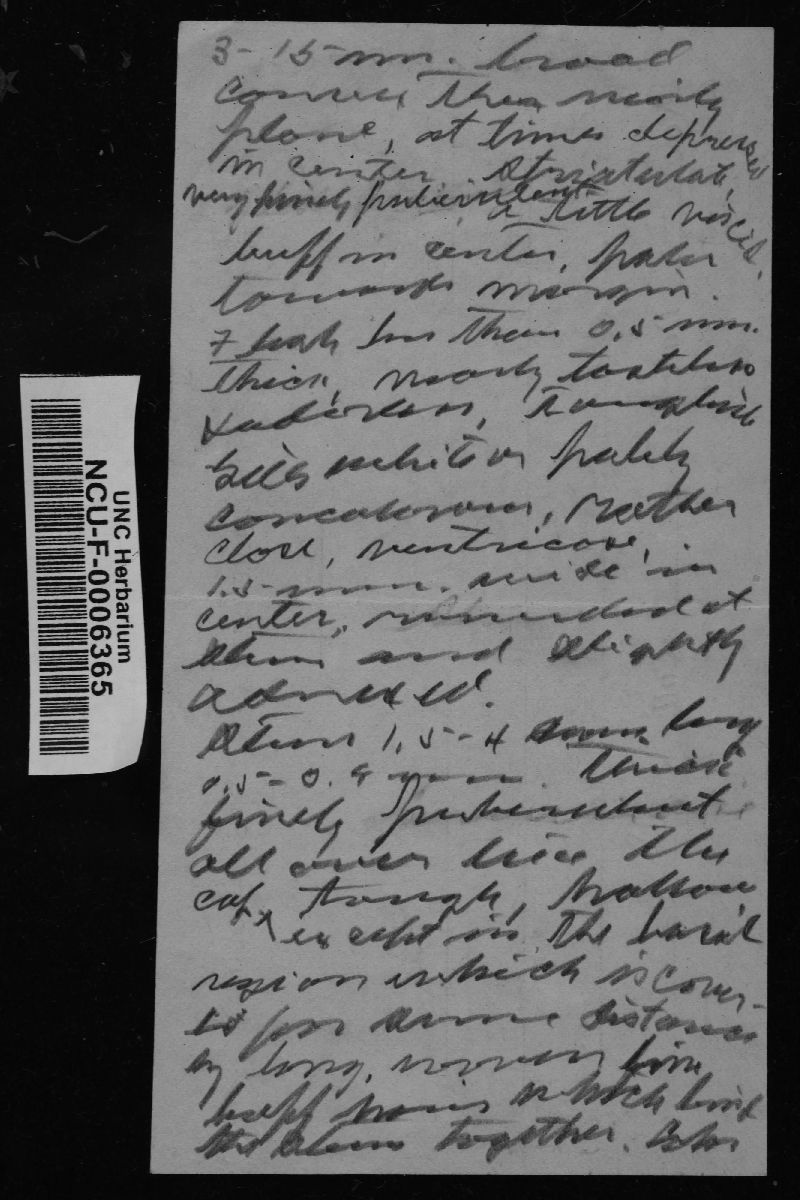 3-15 mm. broad
convex then nearly
plane, at times depressed
in center. striatulate,
very finely puberulent
a little viscid.
buff in center, paler
towards margin.
Flesh less than 0.5 mm.
thick, nearly tasteless
& odorless, toughish
Gills white or palely
concolorous, rather
close, ventricose,
1.5 mm. wide in
center, rounded at
stem and slightly
adnexed.
Stem 1.5-4 long
0.5- mm. thick
finely puberulent
all over like the
cap, tough, hollow
except in the basal
region which is cover-
ed for some distance
by long, woven fine
buff hairs which bind
the stems together.
UNC Herbarium
NCU-F-0006365